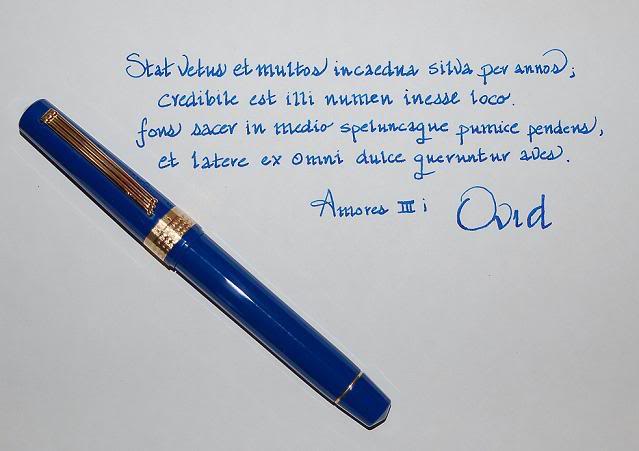 Stat vetus et multos incaedua silva per annos;
credibile est illi numen inesse loco.
fons sacer in medio speluncaque pumice pendens,
et latere ex omni dulce queruntur aves.
Amores III i Ovid